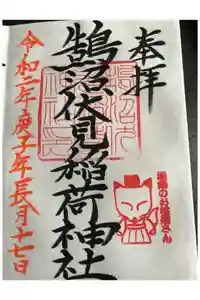 奉拝
鵠沼伏見稲荷神社
湘南のお稲荷さん
令和二年庚子年長月十七日